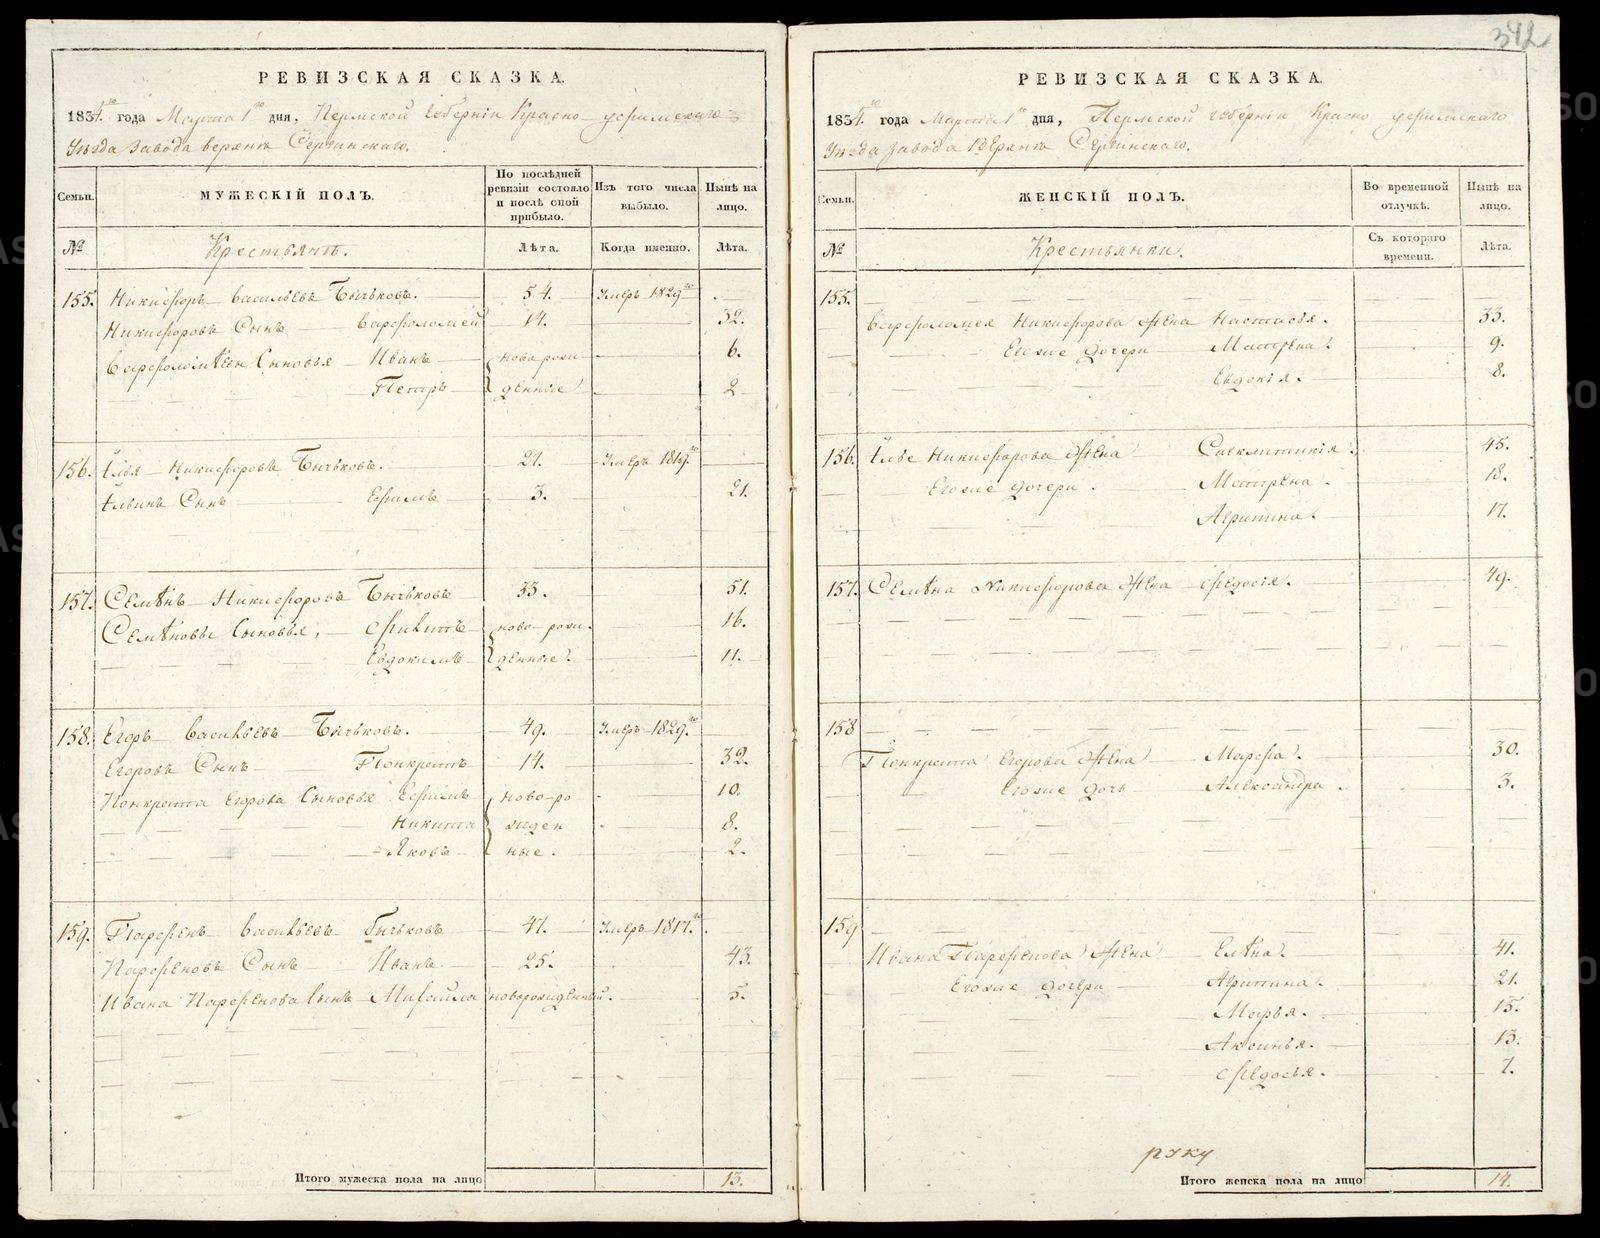 342
РЕВИЗСКАЯ СКАЗКА.
1834.го года Марта 1го дня, Пермской Губернiи Красно-уфимскаго
Уѣзда Завода верхнѣ Сергинскаго.
Семьи.
МУЖЕСКIЙ ПОЛЪ.
По послѣдней ревизiи состояло и послѣ оной прибыло.
Изъ того числа выбыло.
Нынѣ на лицо.
№
Крестьянъ.
Лѣта.
Когда именно.
Лѣта.
155. Никифоръ Васильевъ Бычковъ. 54. Умеръ 1829го
Никифоровъ Сынъ Варфоломей 14. 32.
Варфоломѣевы Сыновья Иванъ новорож- 6.
Петръ денные 2
156. Илья Никифоровъ Бычковъ. 21. Умеръ 1819.го
Ильинъ Сынъ Ефимъ 3. 21.
157. Семѣнъ Никифоровъ Бычковъ 33. 51.
Семѣновы Сыновья, Филитъ ново рож. 16.
Евдокимъ денные. 11.
158. Егоръ Васильевъ Бычковъ. 49. Умеръ 1829.го
Егоровъ Сынъ Понкратъ 14. 32.
Понкрата Егорова Сыновья Ефимъ ново-ро 10.
Никита жден 8.
Яковъ ные. 2.
159. Парфенъ Васильевъ Бычковъ 47. Умеръ 1817.го
Парфеновъ Сынъ Иванъ 25. 43.
Ивана Парфенова Сынъ Михайла новорожденный. 5.
Итого мужеска пола на лицо 13.
РЕВИЗСКАЯ СКАЗКА.
1834.го года Марта 1го дня, Пермской Губернiи Красно уфимскаго
Уѣзда Завода Верхнѣ Сергинскаго.
Семьи.
ЖЕНСКIЙ ПОЛЪ.
Во временной отлучкѣ.
Нынѣ на лицо.
№
Крестьянки.
Съ котораго времени.
Лѣта.
155.
Варфоломея Никифорова Жена Настасья. 33.
Егожие дочери Матрена. 9.
Евдокiя. 8.
156. Илье Никифорова Жена Синклитикiя. 45.
Егожие дочери. Матрена. 18.
Агрипина. 17.
157. Семѣна Никифорова Жена Федосiя. 49.
158
Понкрата Егорова Жена Марфа. 30.
Егожие дочь Александра. 3.
159
Ивана Парфенова Жена Елѣна. 41.
Егожие дочери Агрипина. 21.
Марья. 15.
Аксинья. 13.
Федосья. 7.
руку
Итого женска пола на лицо 14.